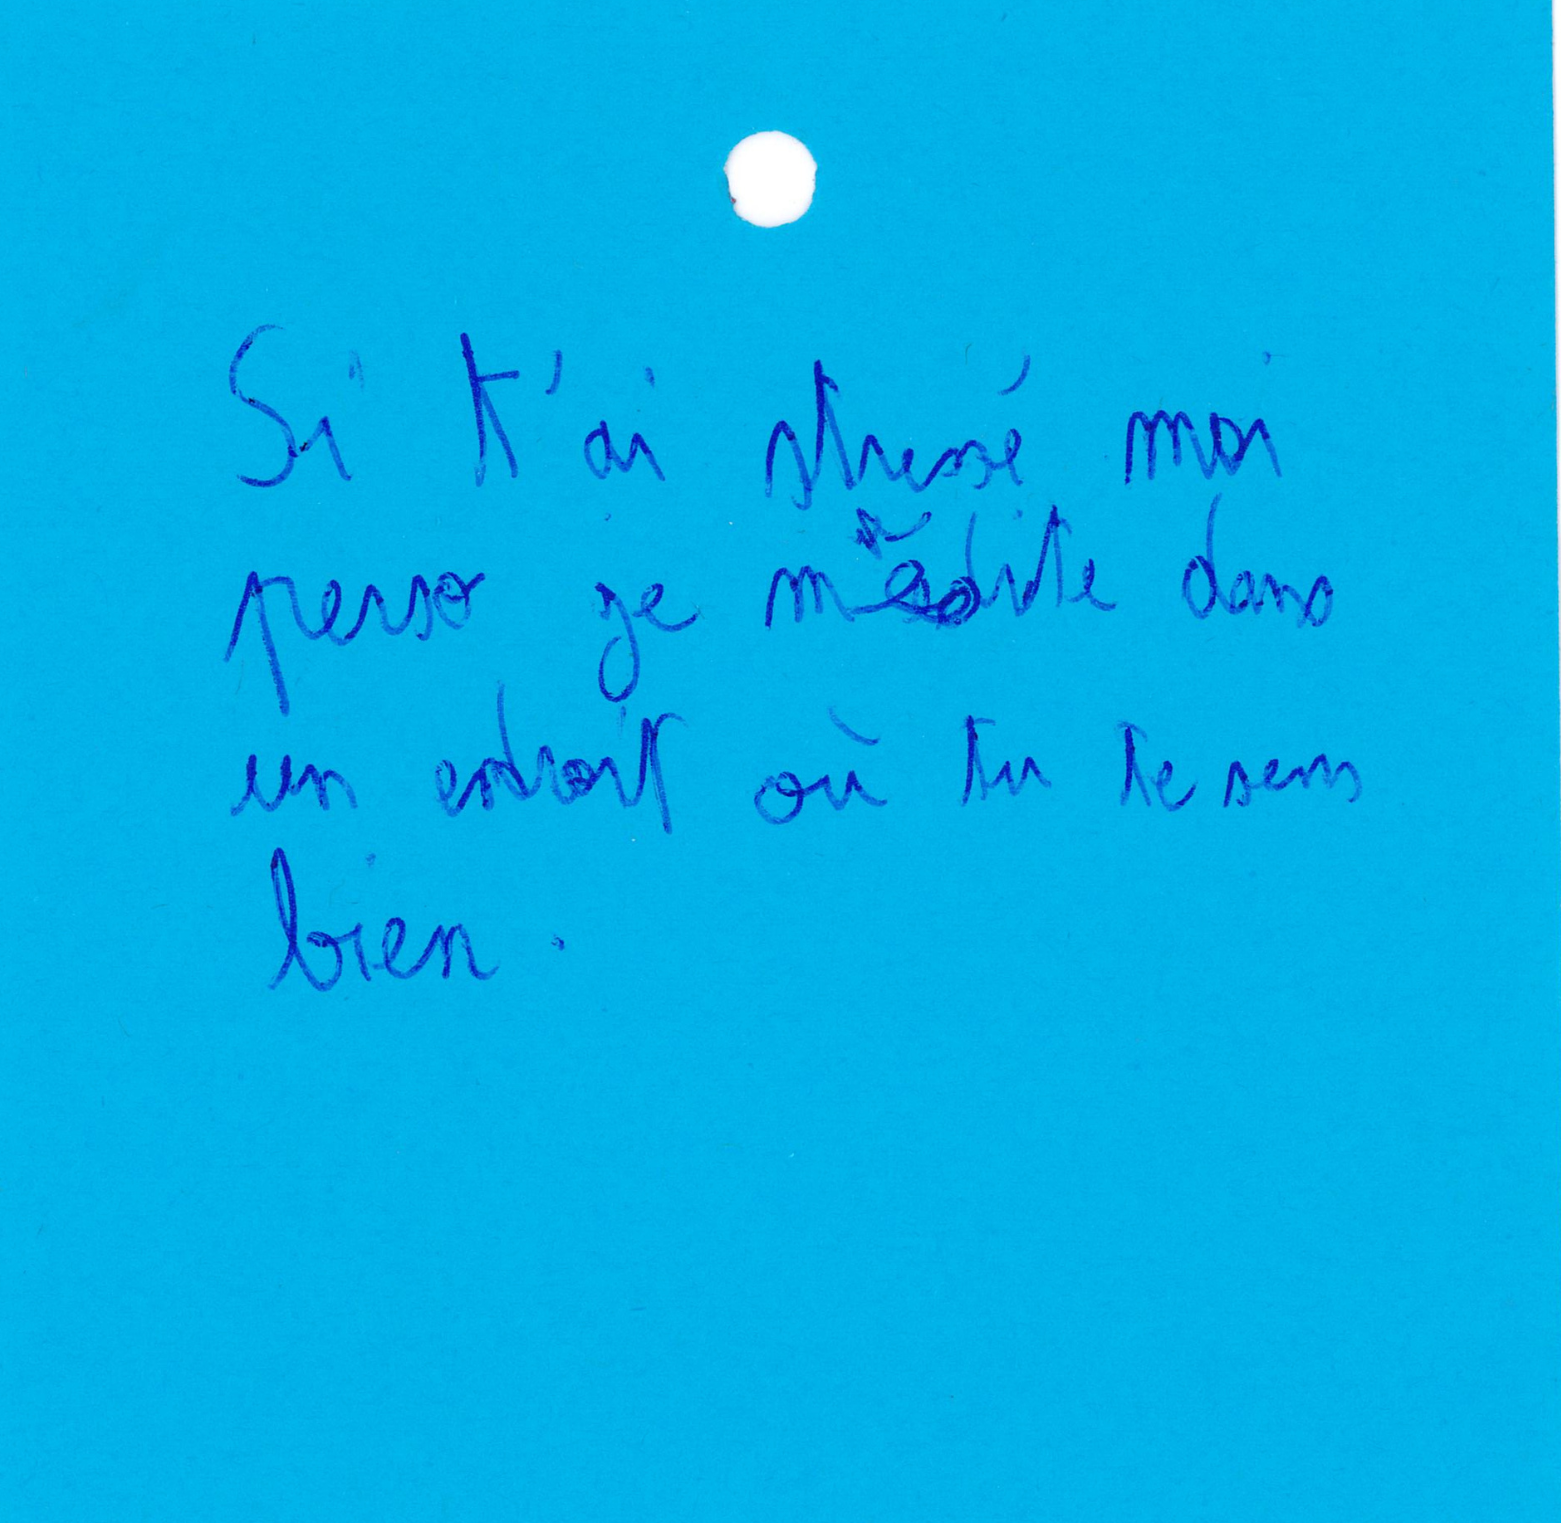 Si t'ai stressé moi
perso je médite dans
un endroit où tu te sens
bien.